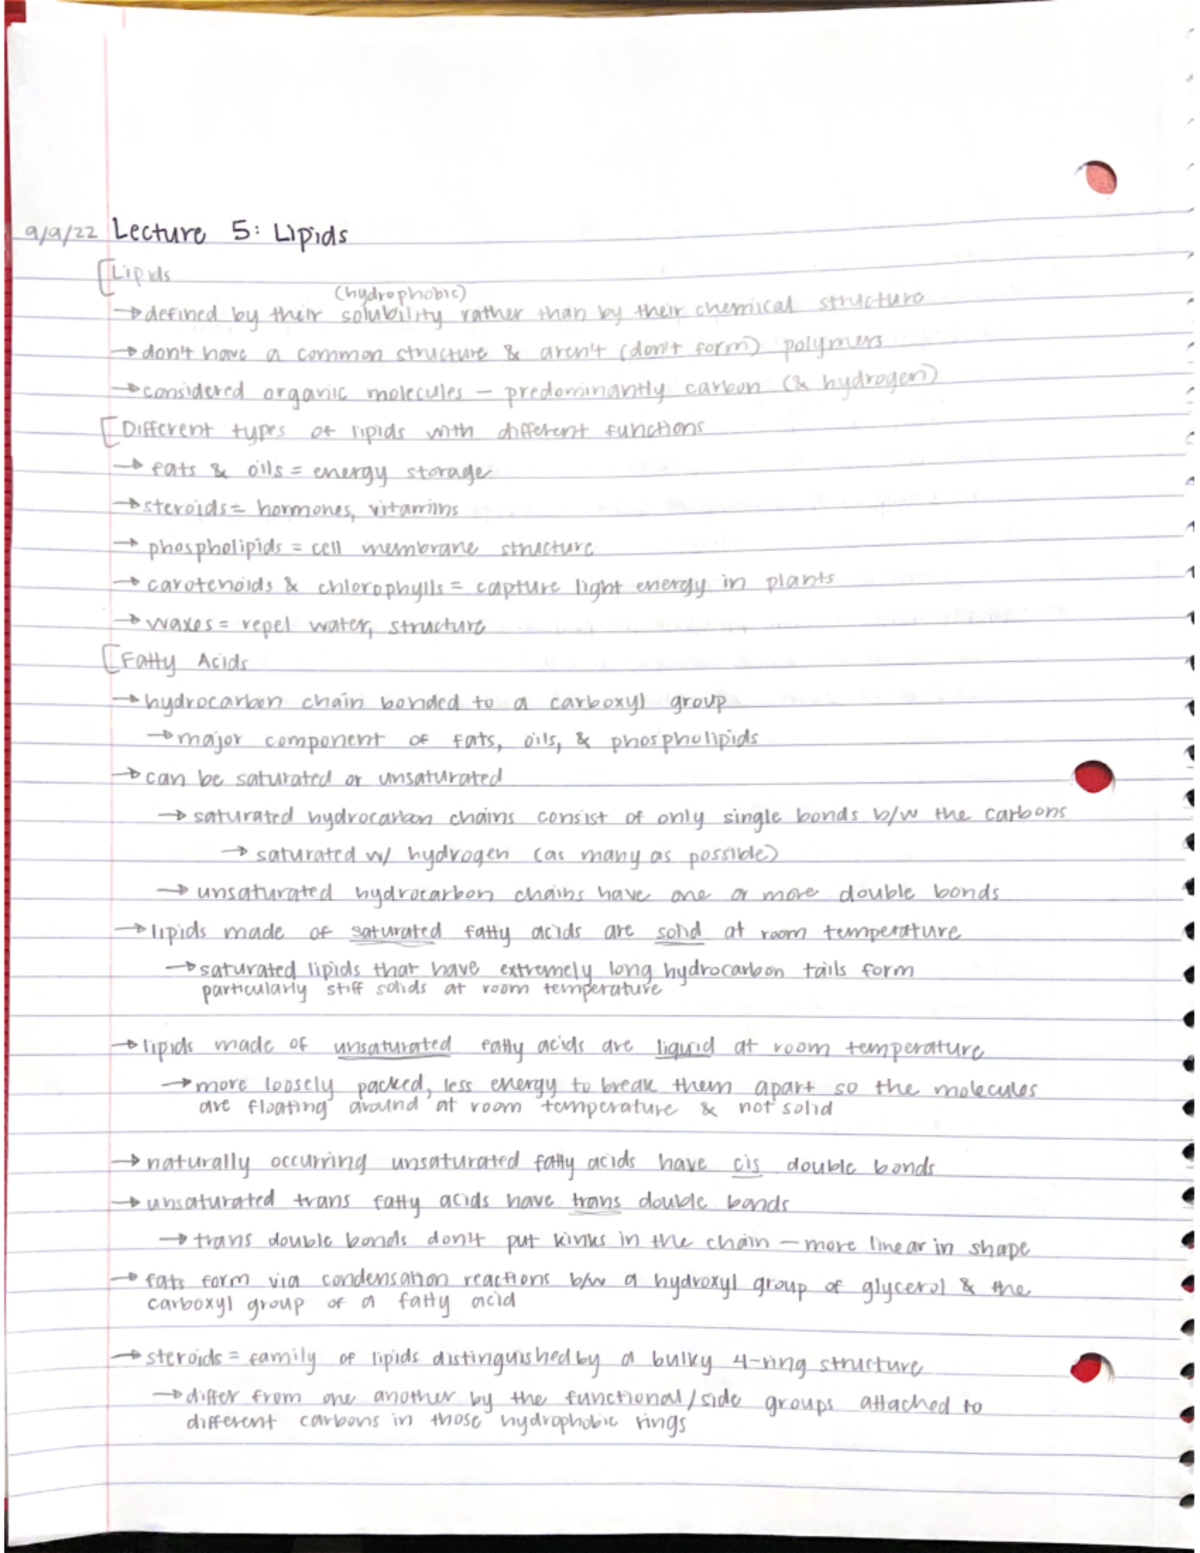 9/9/22 Lecture 5: Lipids
[Lipids
(hydrophobic)
→ defined by their solubility rather than by their chemical structure
→ don't have a common structure & aren't (don't form) polymers
→ considered organic molecules – predominantly carbon (& hydrogen)
[Different types of lipids with different functions
→ fats & oils = energy storage
→ steroids = hormones, vitamins
→ phospholipids = cell membrane structure
→ carotenoids & chlorophylls = capture light energy in plants
→ waxes = repel water, structure
[Fatty Acids
→ hydrocarbon chain bonded to a carboxyl group
→ major component of fats, oils, & phospholipids
→ can be saturated or unsaturated
→ saturated hydrocarbon chains consist of only single bonds b/w the carbons
→ saturated w/ hydrogen (as many as possible)
→ unsaturated hydrocarbon chains have one or more double bonds
→ lipids made of saturated fatty acids are solid at room temperature
→ saturated lipids that have extremely long hydrocarbon tails form
particularly stiff solids at room temperature
→ lipids made of unsaturated fatty acids are liquid at room temperature
→ more loosely packed, less energy to break them apart so the molecules
are floating around at room temperature & not solid
→ naturally occurring unsaturated fatty acids have cis double bonds
→ unsaturated trans fatty acids have trans double bonds
→ trans double bonds don't put kinks in the chain – more linear in shape
→ fats form via condensation reactions b/w a hydroxyl group of glycerol & the
carboxyl group of a fatty acid
→ steroids = family of lipids distinguished by a bulky 4-ring structure
→ differ from one another by the functional/side groups attached to
different carbons in those hydrophobic rings